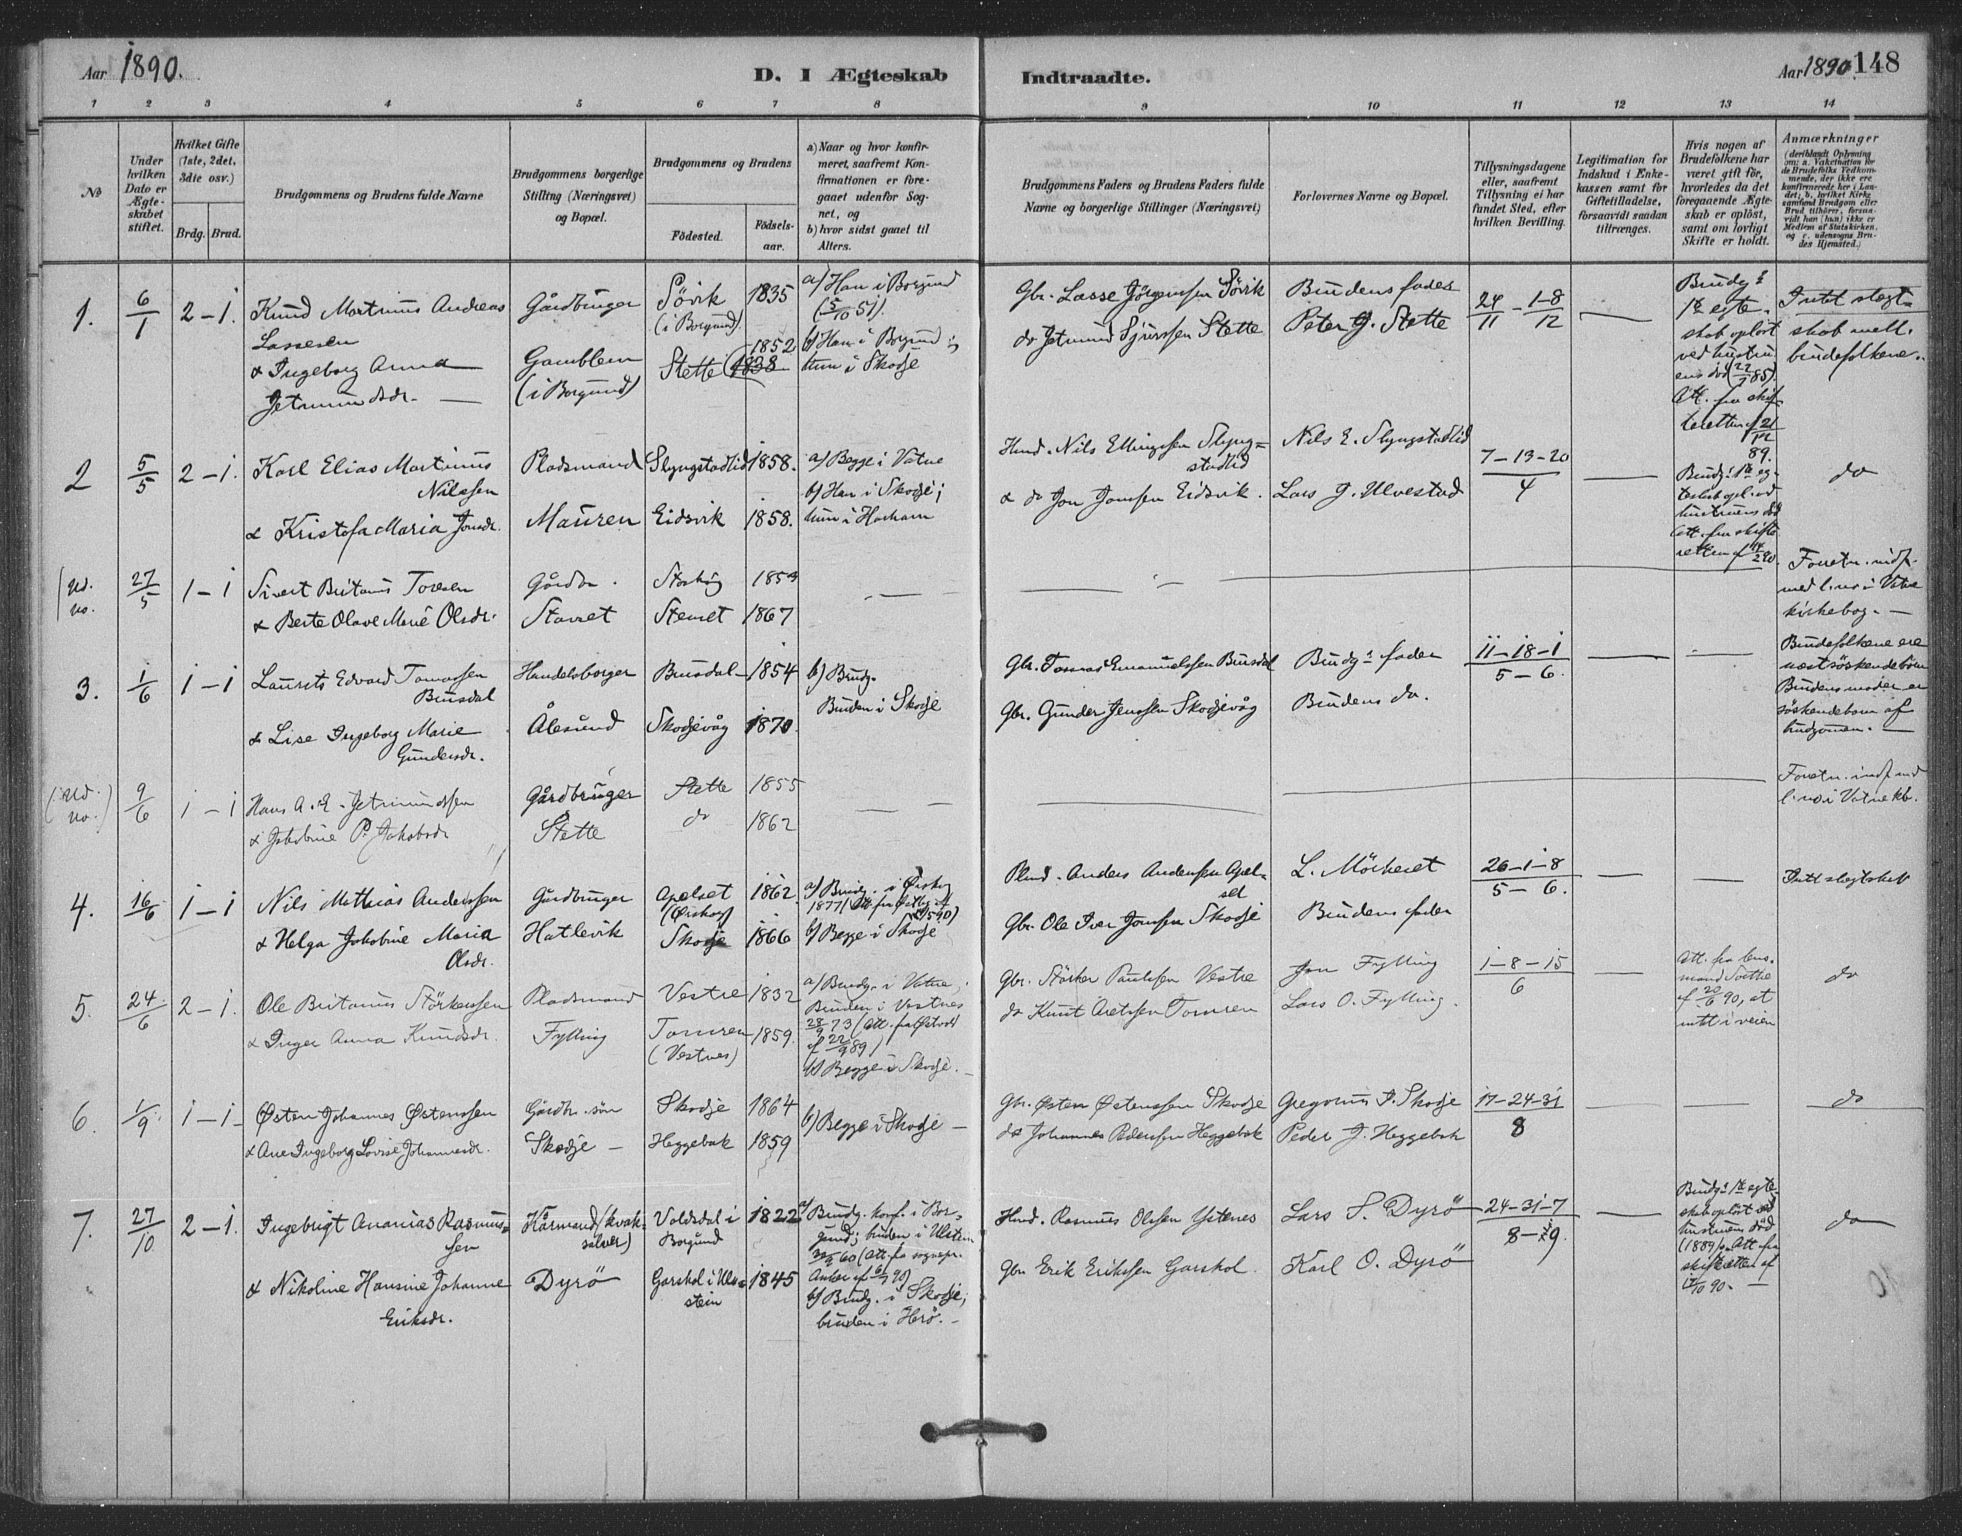 Aar 1890.
D. I Ægteskab
Indtraadte.
Aar 1890.
148
1 2 3 4 5 6 7 8 9 10 11 12 13 14
No
Under hvilken Dato er Ægteskabet stiftet.
Hvilket Gifte (1ste, 2det, 3die osv.)
Brdg. Brud.
Brudgommens og Brudens fulde Navne
Brudgommens borgerlige Stilling (Næringsvei) og Bopæl.
Brudgommens og Brudens
Fødested.
Fødselsaar.
a) Naar og hvor konfirmeret, saafremt Konfirmationen er foregaaet udenfor Sognet, og
b) hvor sidst gaaet til Alters.
Brudgommens Faders og Brudens Faders fulde Navne og borgerlige Stillinger (Næringsvei)
Forlovernes Navne og Bopæl.
Tillysningsdagene eller, saafremt Tillysning ei har fundet Sted, efter hvilken Bevilling.
Legitimation for Indskud i Enkekassen samt for Giftetilladelse, forsaavidt saadan tiltrænges.
Hvis nogen af Brudefolkene har været gift før, hvorledes da det foregaaende Ægteskab er opløst, samt om lovligt Skifte er holdt.
Anmærkninger
(deriblandt Oplysning om: a. Vakcination for de Brudefolks Vedkommende, der ikke ere konfirmerede her i Landet; b. hvilket Kirkesamfund Brudgom eller Brud tilhører, forsaavidt han (hun) ikke er Medlem af Statskirken, og c. udensogns Brudes Hjemsted.)
1. 6/1 2 – 1.
Knud Martinus Andreas
Lassesen
& Ingeborg Anna
Jetmundsdr. —
Gårdbruger
Gamblem
(i Borgund)
Søvik
(i Borgund).
Stette
1835
1852
(1838
a) Han i Borgund
(5/10 51).
b) Han i Borgund;
hun i Skodje
Gbr. Lasse Jørgensen Søvik
do Jetmund Sjurssen Stette
Brudens fader
Peter J. Stette
24 – 1–8
11 12
Brudg.s
1ste egte-
skab opløst
ved hustru-
ens död (22/7 85).
Att. fra skif-
teretten af 21/12
89.
Intet slegt-
skab mell.
brudefolkene.
2 5/5 2 – 1.
Karl Elias Martinus
Nilssen
& Kristofa Maria Jonsdr.
Pladsmand
Mauren
Slyngstadlid
Eidsvik
1858.
1858.
a) Begge i Vatne
b) Han i Skodje;
hun i Harham
Husd. Nils Ellingsen Slyng-
stadlid
& do Jon Jonsen Eidsvik.
Nils E. Slyngstadlid
Lars J. Ulvestad
7–13–20
4
Brudg.s 1ste eg-
teskab opl. ved
hustruens död
Att. fra skifte
retten af
do
(Ud.
no. 27/5 1 – 1
Sivert Britanus Toresen
& Berte Olave Marie Olsdr.
Gårdbr.
Stavset
Storhøg
Stenset
1859
1867
Foretn. indf.
med l.no i Vatne
kirkebog. —
3. 1/6 1 – 1
Laurits Edvard Tomassen
Brusdal
& Lise Ingeborg Marie
Gundersdr.
Handelsborger
Ålesund
Brusdal
Skodjevåg
1854
1870.
b) Brudg.
Bruden i Skodje
Gbr. Tomas Emanuelssen Brusdal
Gbr. Gunder Jenssen Skodjevåg
Brudg.s fader
Brudens do.
11–18–1
5 – 6.
Brudefolkene ere
næstsöskendebörn
Brudens moder er
söskendebarn af
brudgommen. —
(Ud.
no.) 9/6 1 – 1
Hans A. E. Jetmundssen
& Jakobine P. Jakobsdr
Gårdbruger
Stette
Stette
do
1855
1862
Foretn. indf. med
l.no i Vatne kb.
4. 16/6 1 – 1
Nils Mathias Anderssen
& Helga Jakobine Maria
Olsdr.
Gårdbruger
Hatlevik
Apelset
(Ørskog)
Skodje
1862.
1866
a) Brudg. i Ørskog
1877
b) Begge i Skodje
Plmd. Anders Andersen Apel-
set
Gbr. Ole Iver Jonssen Skodje
L. Mörkeset
Brudens fader
26–1–8
5 – 6.
Intet slegtskab
5. 24/6 2 – 1.
Ole Britanus Störkerssen
& Inger Anna Knudsdr.
Pladsmand
Fylling
Vestre
Tomren
(Vestnes)
1832
1859.
a) Brudg. i Vatne;
Bruden i Vestnes
28/9 73 (Att. fra
af 22/9 89)
b) Begge i Skodje. –
Gbr. Störker Paulsen Vestre
do Knut Tomren
Jon Fylling
Lars O. Fylling.
1–8–15
6
Att. fra lens-
mand
af 20/6 90, at
intet i veien
do
6. 1/9 1 – 1
Østen Johannes Østenssen
& Ane Ingeborg Lovise Johannesdr.
Gårdbr. sön
Skodje –
Skodje
Heggebak
1864
1859
b) Begge i Skodje –
Gbr. Østen Østenssen Skodje
do Johannes Pederssen Heggebak
Gregorius P. Skodje
Peder J. Heggebak
17–24–31
8
do
7. 27/10 2 – 1.
Ingebrigt Ananias Rasmus-
sen
& Nikoline Hansine Johanne
Eriksdr.
Kårmand (kvak-
salver)
Dyrö
Voldsdal i
Borgund
Garshol i Ul-
stein
1822
1845
a) Brudg. konf. i Bor-
gund; bruden i Ulstein
60 (Att. fra sognepr.
Anker af 90)
b) Brudg. i Skodje;
bruden i Herö. –
Husd. Rasmus Olssen Ystenes
Gbr. Erik Erikssen Garshol.
Lars S. Dyrö
Karl O. Dyrö
24–31–7
8 – 9.
Brudg.s 1ste egte-
skab oplöst ved
hustruens död
(1889). Att. fra
skifteretten af
90. —
do